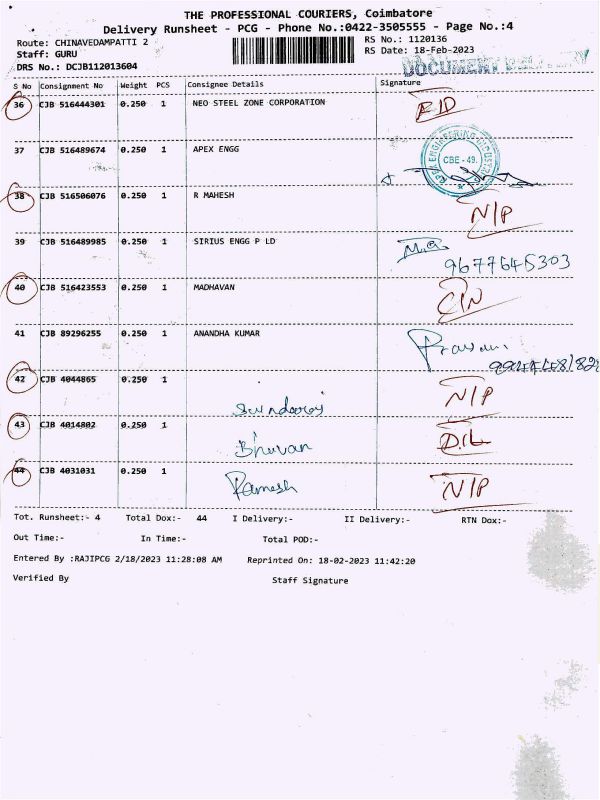 THE PROFESSIONAL COURIERS, Coimbatore
Delivery Runsheet - PCG - Phone No.:0422-3505555 - Page No.:4
Route: CHINAVEDAMPATTI 2
Staff: GURU
DRS No.: DCJB112013604
RS No.: 1120136
RS Date: 18-Feb-2023
DOCUMENT DELIVERY
S No Consignment No Weight PCS Consignee Details Signature
36 CJB 516444301 0.250 1 NEO STEEL ZONE CORPORATION
37 CJB 516489674 0.250 1 APEX ENGG
CBE - 49.
38 CJB 516506076 0.250 1 R MAHESH N/P
39 CJB 516489985 0.250 1 SIRIUS ENGG P LD
9677645303
40 CJB 516423553 0.250 1 MADHAVAN
41 CJB 89296255 0.250 1 ANANDHA KUMAR
42 CJB 4044865 0.250 1 N/P
43 CJB 4014802 0.250 1 Bhuvan D.L
44 CJB 4031031 0.250 1 Ramesh N/P
Tot. Runsheet:- 4 Total Dox:- 44 I Delivery:- II Delivery:- RTN Dox:-
Out Time:- In Time:- Total POD:-
Entered By :RAJIPCG 2/18/2023 11:28:08 AM Reprinted On: 18-02-2023 11:42:20
Verified By Staff Signature